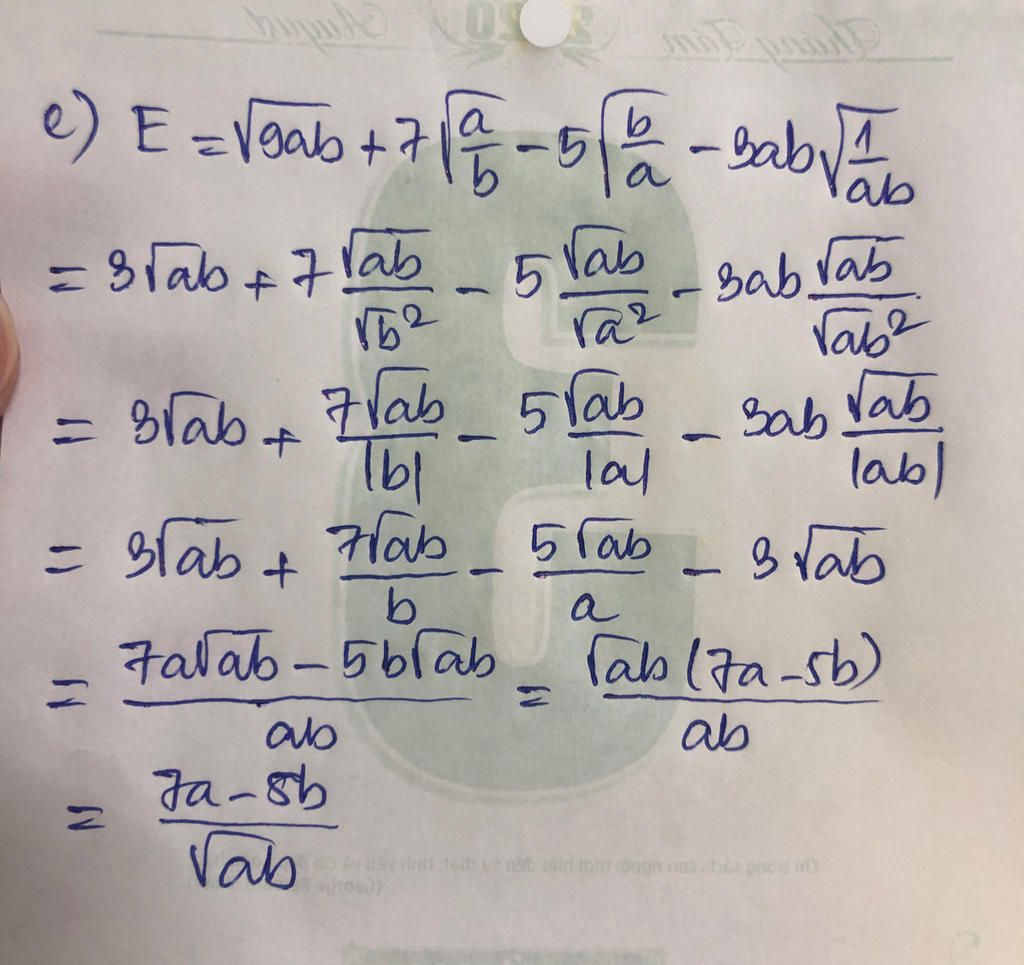 August 2020 Tháng Tám
e) E = √9ab + 7√(a/b) - 5√(b/a) - 3ab√(1/ab)
= 3√ab + 7 √ab/√b² - 5 √ab/√a² - 3ab √ab/√ab²
= 3√ab + 7√ab/|b| - 5√ab/|a| - 3ab √ab/|ab|
= 3√ab + 7√ab/b - 5√ab/a - 3√ab
= (7a√ab - 5b√ab)/ab = √ab (7a - 5b)/ab
= (7a - 5b)/√ab